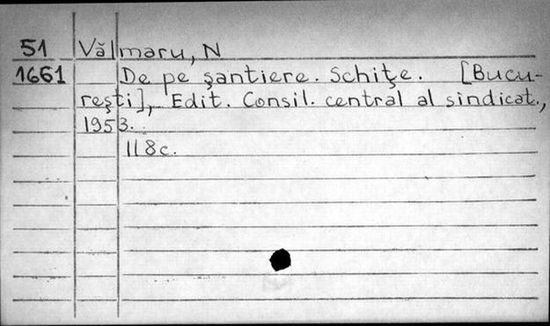 51 Vălmaru, N
1661 De pe şantiere. Schiţe. [Bucu-
reşti], Edit. Consil. central al sindicat.,
1953.
118c.